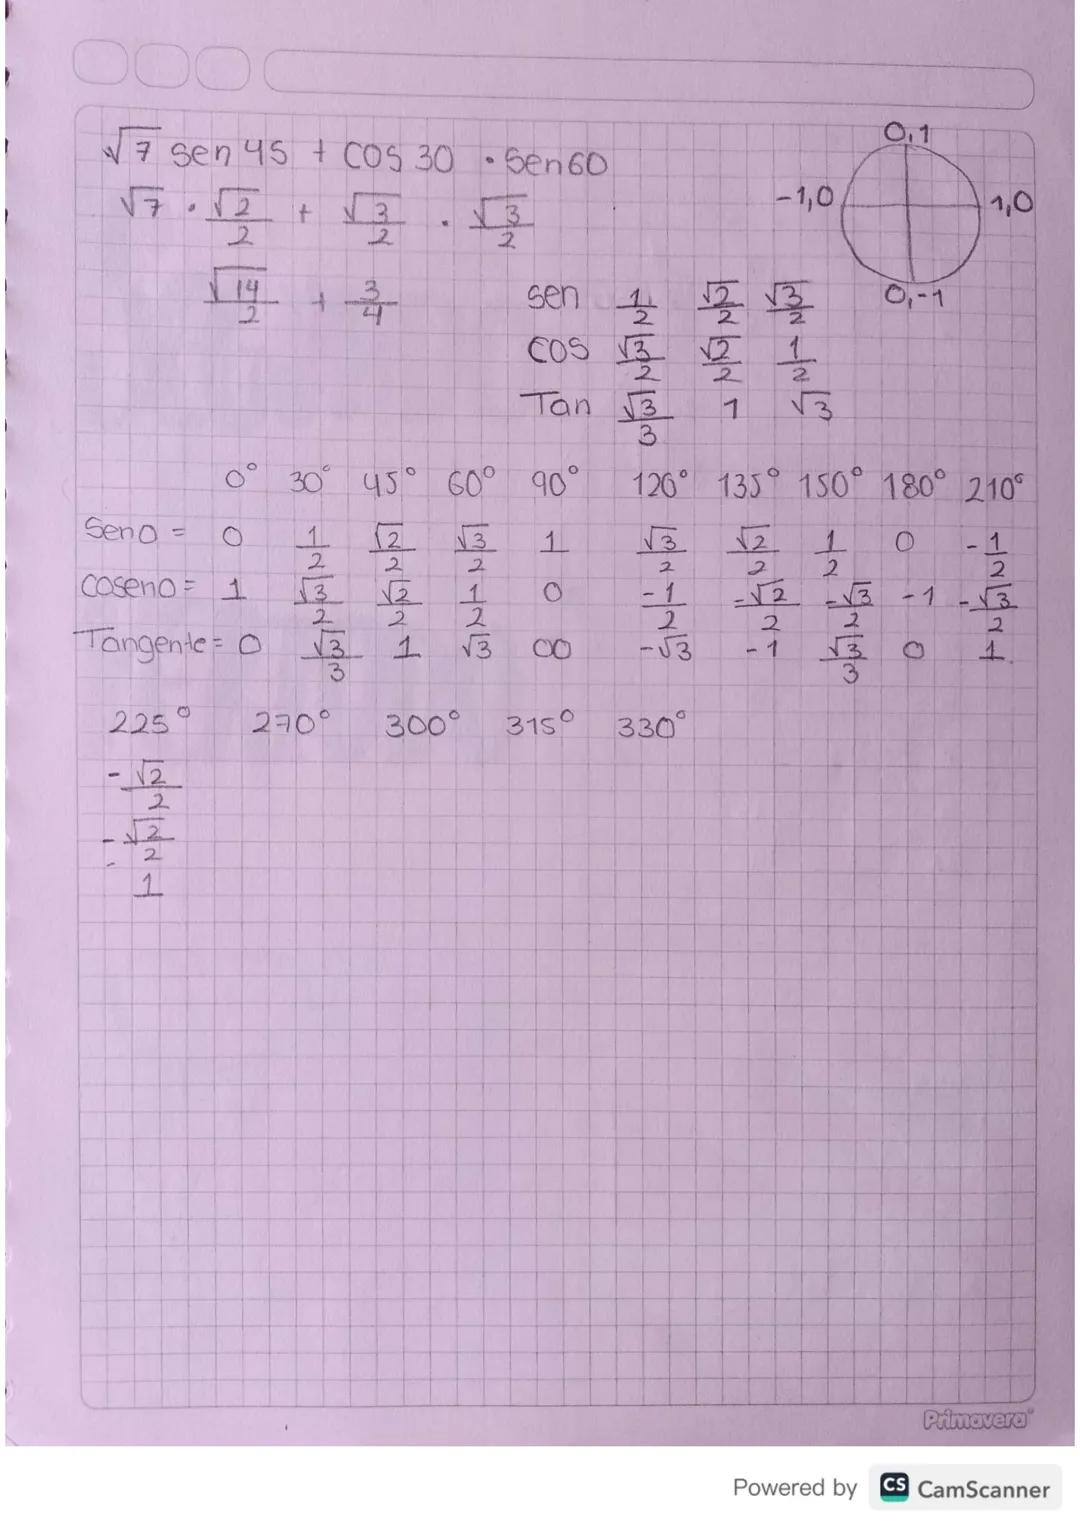 √7 sen 45 + cos 30 · sen 60
0,1
√7 · √2/2 + √3/2 · √3/2
-1,0 1,0
√14/2 + 3/4
0,-1
sen 1/2 √2/2 √3/2
cos √3/2 √2/2 1/2
Tan √3/3 1 √3
0° 30° 45° 60° 90° 120° 135° 150° 180° 210°
Seno = 0 1/2 √2/2 √3/2 1 √3/2 √2/2 1/2 0 -1/2
coseno = 1 √3/2 √2/2 1/2 0 -1/2 -√2/2 -√3/2 -1 -√3/2
Tangente = 0 √3/3 1 √3 ∞ -√3 -1 √3/3 0 1
225° 270° 300° 315° 330°
-√2/2
-√2/2
1
Primavera®
Powered by CS CamScanner